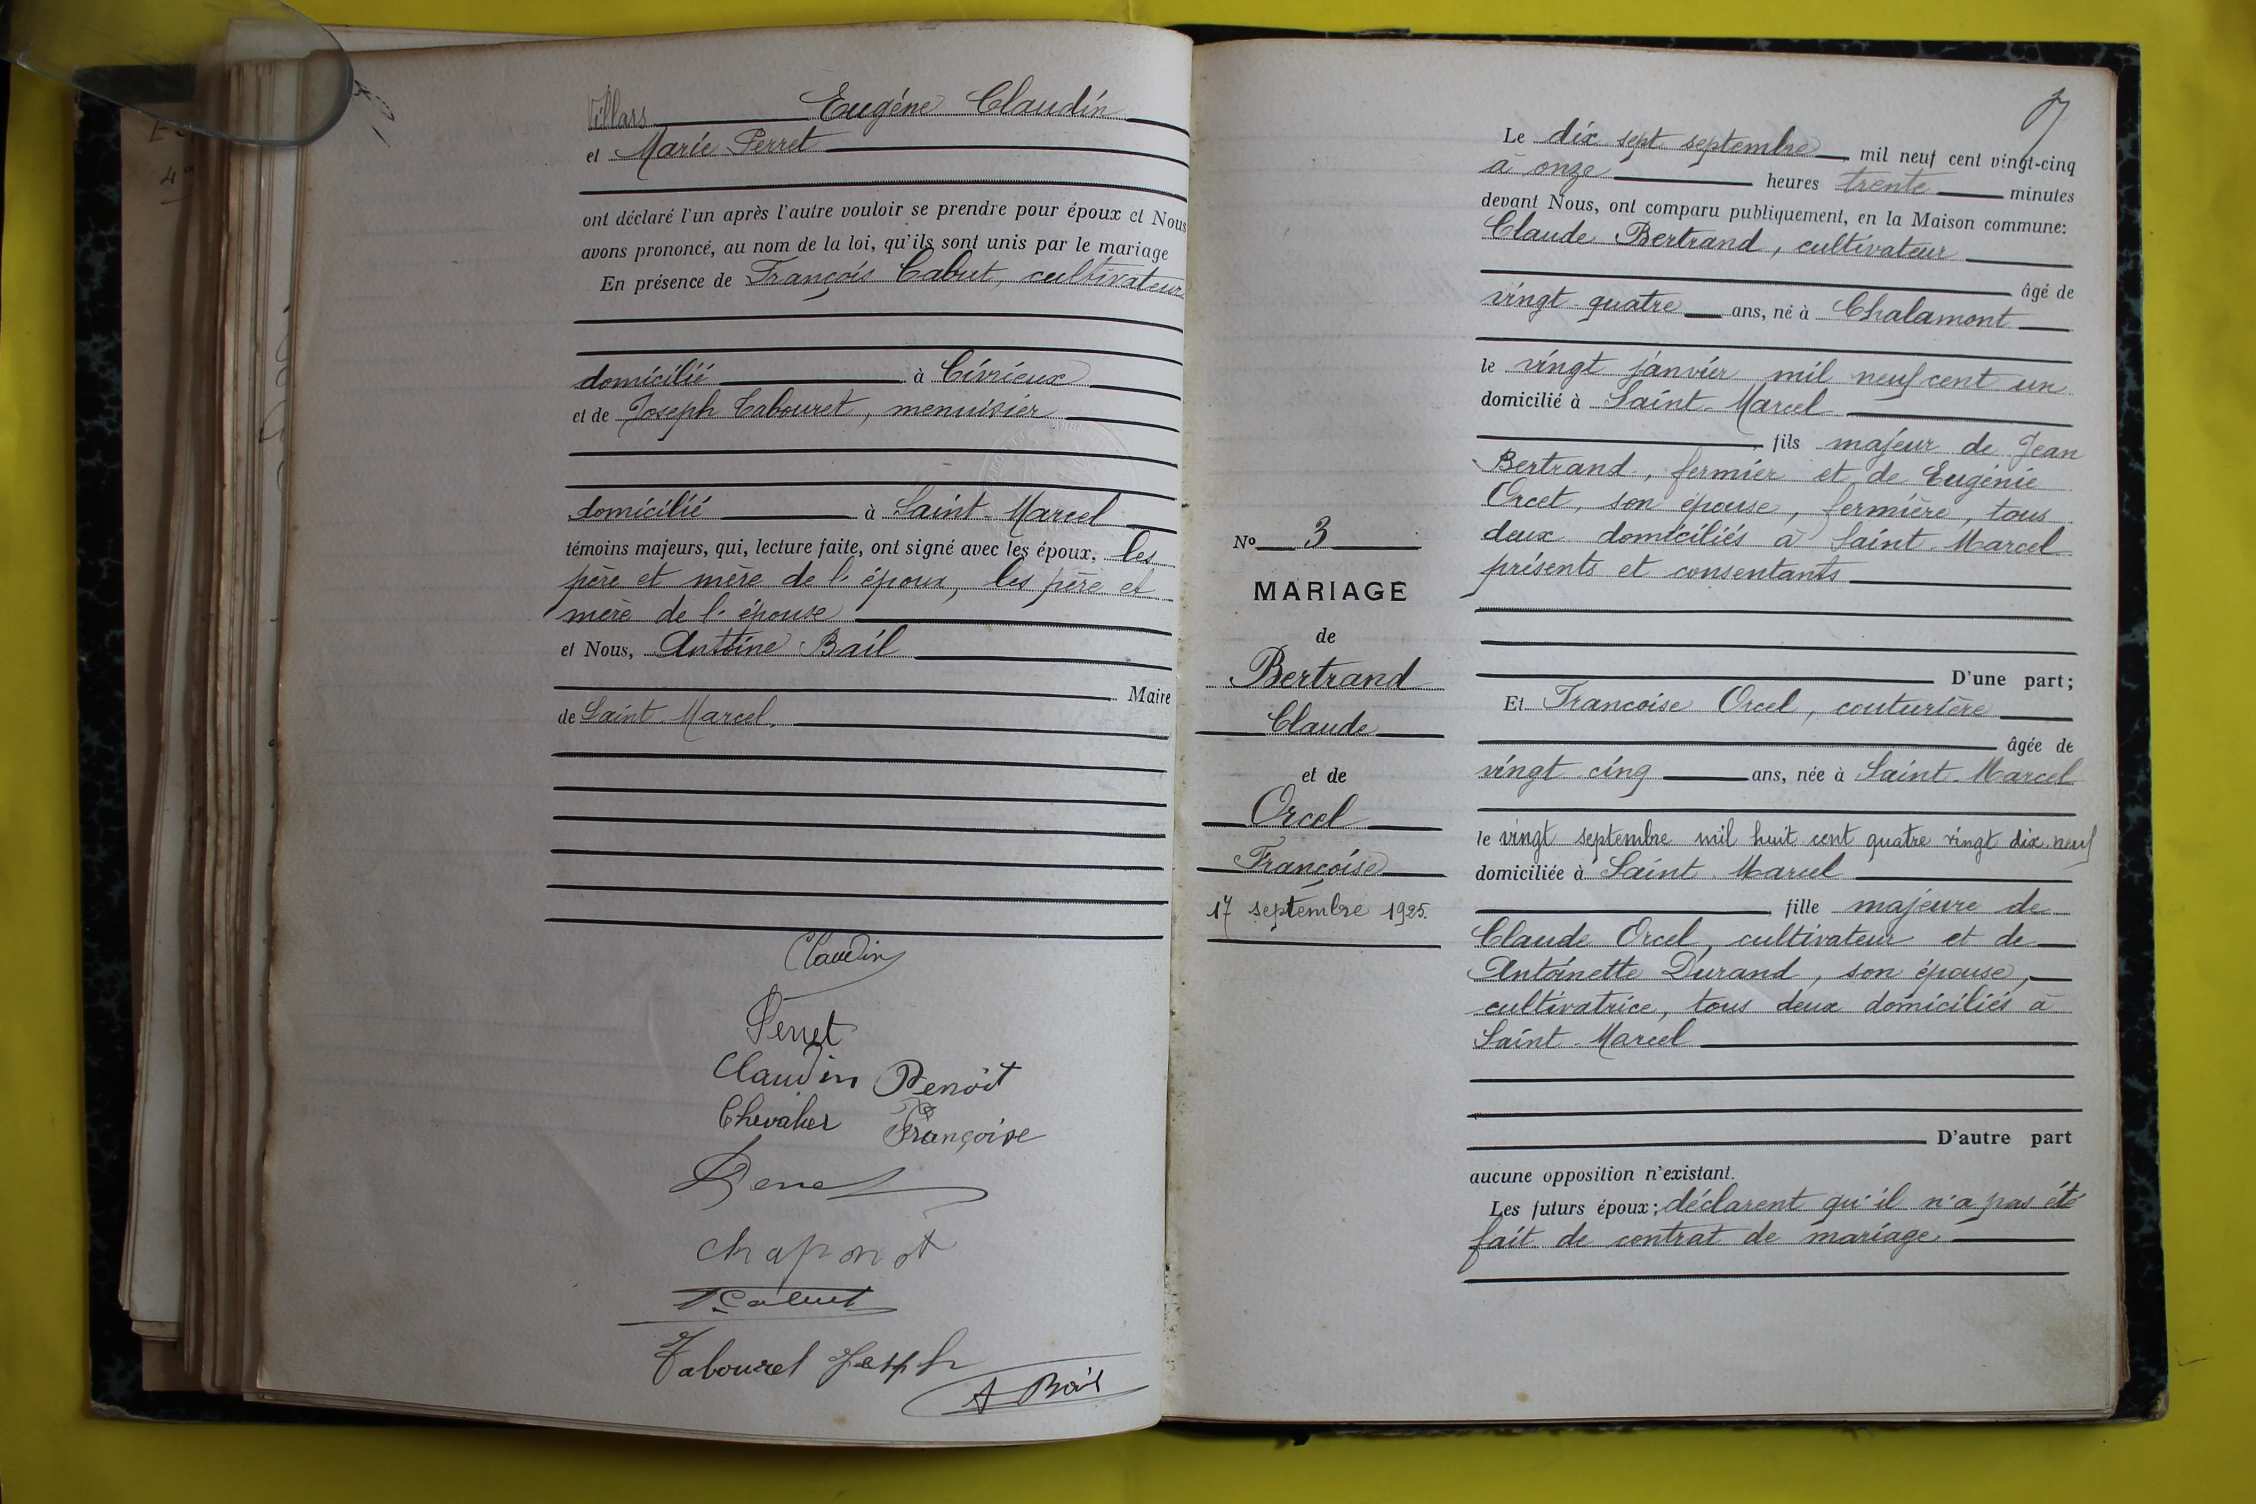 Villars Eugéne Claudin
et Marie Perret
ont déclaré l'un après l'autre vouloir se prendre pour époux et Nous
avons prononcé, au nom de la loi, qu'ils sont unis par le mariage
En présence de François Cabut, cultivateur
domicilié à Civrieux
et de Joseph Tabouret, menuisier
domicilié à Saint-Marcel
témoins majeurs, qui, lecture faite, ont signé avec les époux, les
père et mère de l'époux, les père et
mère de l'épouse
et Nous, Antoine Bail
Maire
de Saint-Marcel.
Claudin
Perret
Claudin Benoit
Chevalier Françoise
Perret
Chaponot
F. Cabut
Tabouret Joseph
A Bail
7
Le dix sept septembre mil neuf cent vingt-cinq
à onze heures trente minutes
devant Nous, ont comparu publiquement, en la Maison commune:
Claude Bertrand, cultivateur
âgé de
vingt-quatre ans, né à Chalamont
le vingt janvier mil neuf cent un
domicilié à Saint-Marcel
fils majeur de Jean
Bertrand, fermier et de Eugénie
Orcet, son épouse, fermière, tous
deux domiciliés à Saint-Marcel
présents et consentants
D'une part;
Et Francoise Orcel, couturière
âgée de
vingt-cinq ans, née à Saint-Marcel
le vingt septembre mil huit cent quatre vingt dix neuf
domiciliée à Saint-Marcel
fille majeure de
Claude Orcel, cultivateur et de
Antoinette Durand, son épouse,
cultivatrice, tous deux domiciliés à
Saint-Marcel
D'autre part
aucune opposition n'existant.
Les futurs époux; déclarent qu'il n'a pas été
fait de contrat de mariage.
No 3
MARIAGE
de
Bertrand
Claude
et de
Orcel
Françoise
17 septembre 1925.